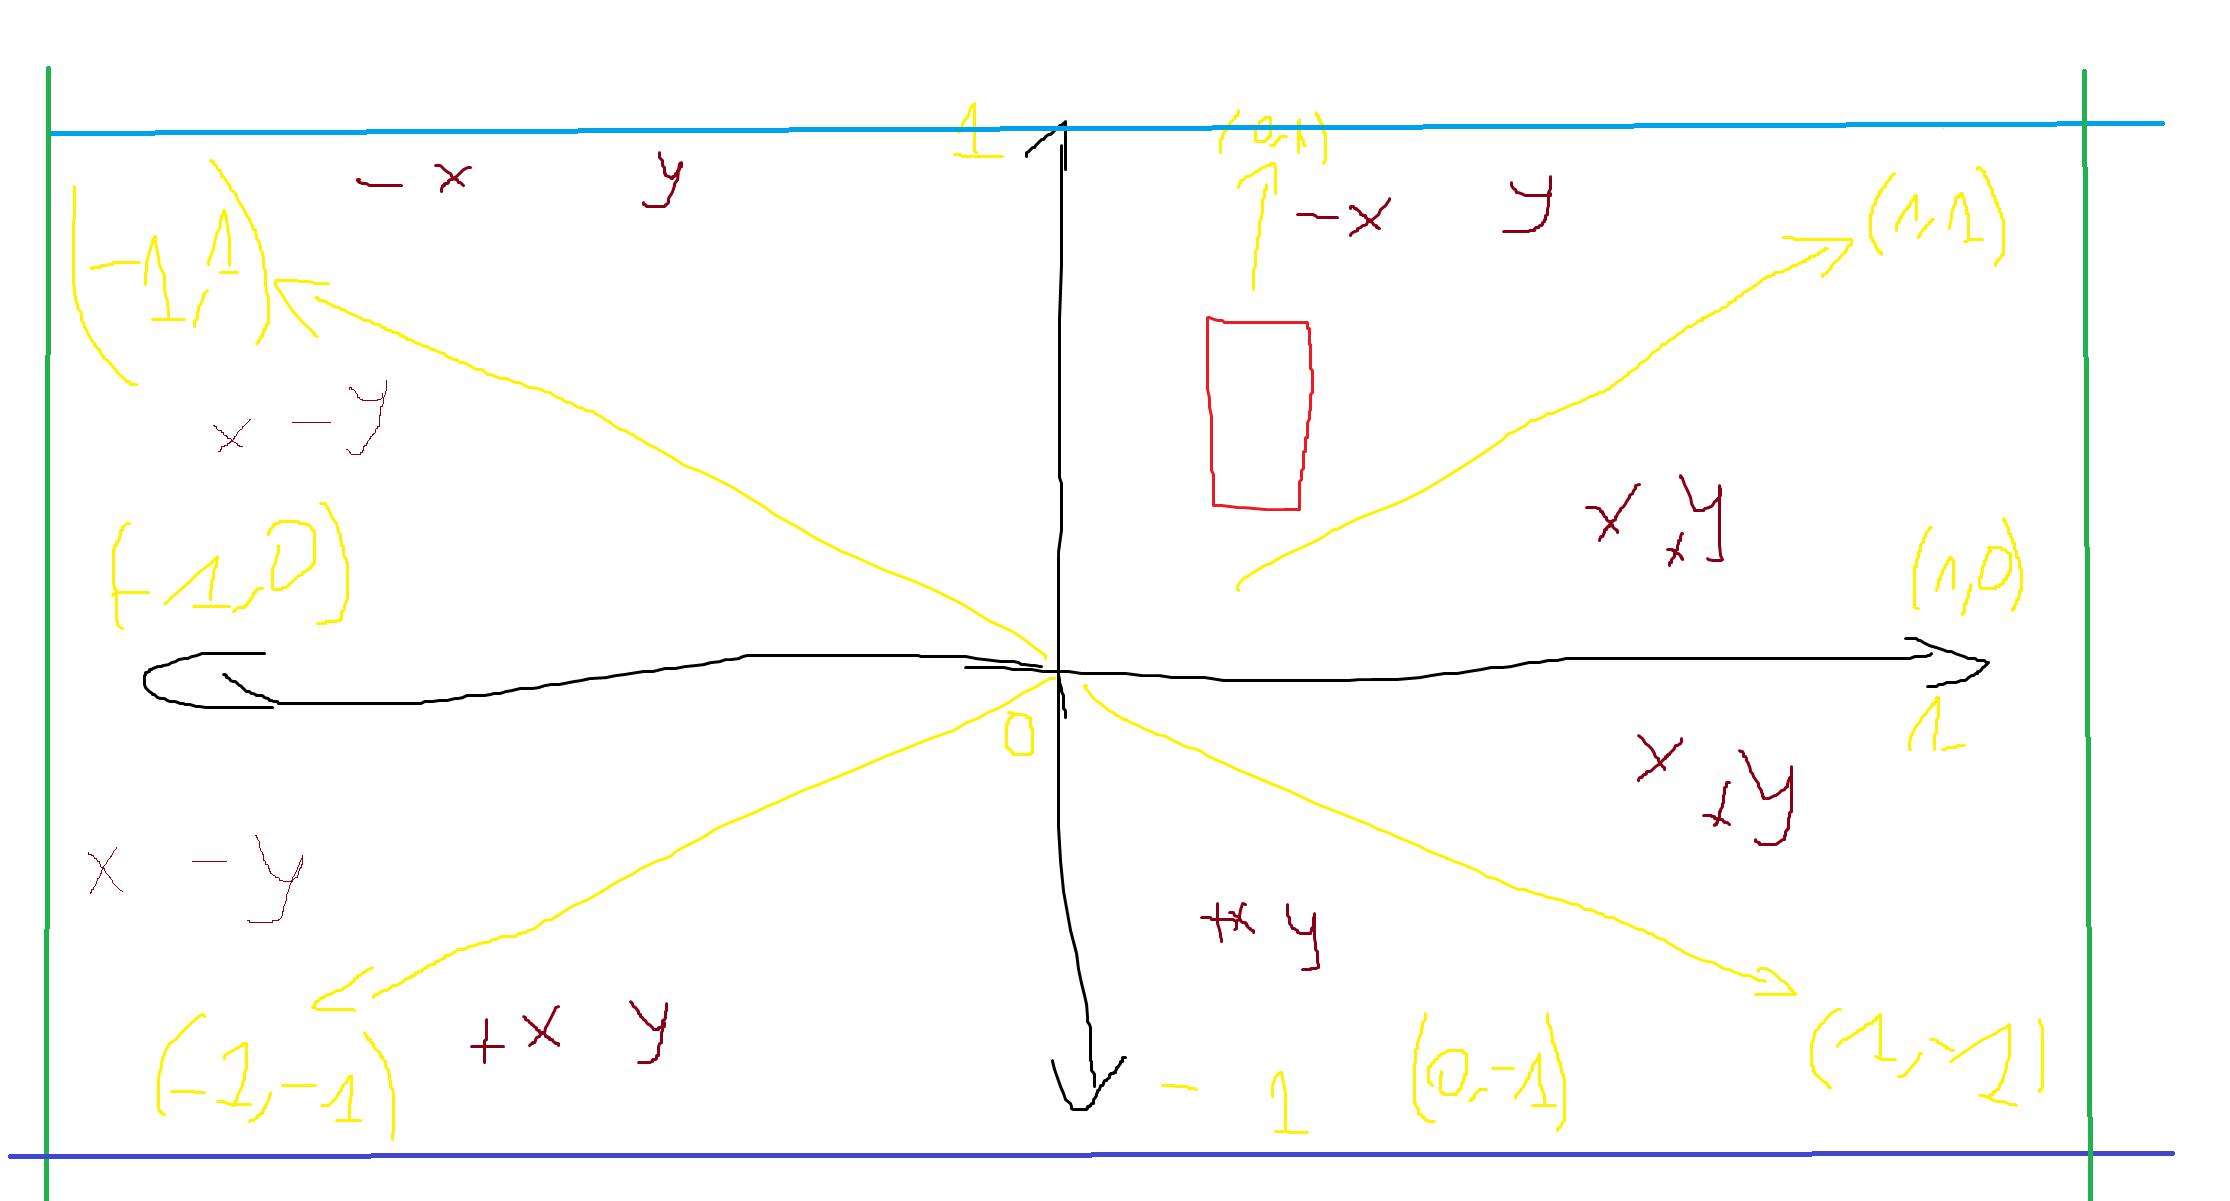 1 (0,1)
- x y
- x y
(1,1)
(-1,1)
x - y
x y
(-1,0)
(1,0)
0
1
x y
x - y
+x y
+x y
(-1,-1)
- 1
(0,-1)
(1,-1)